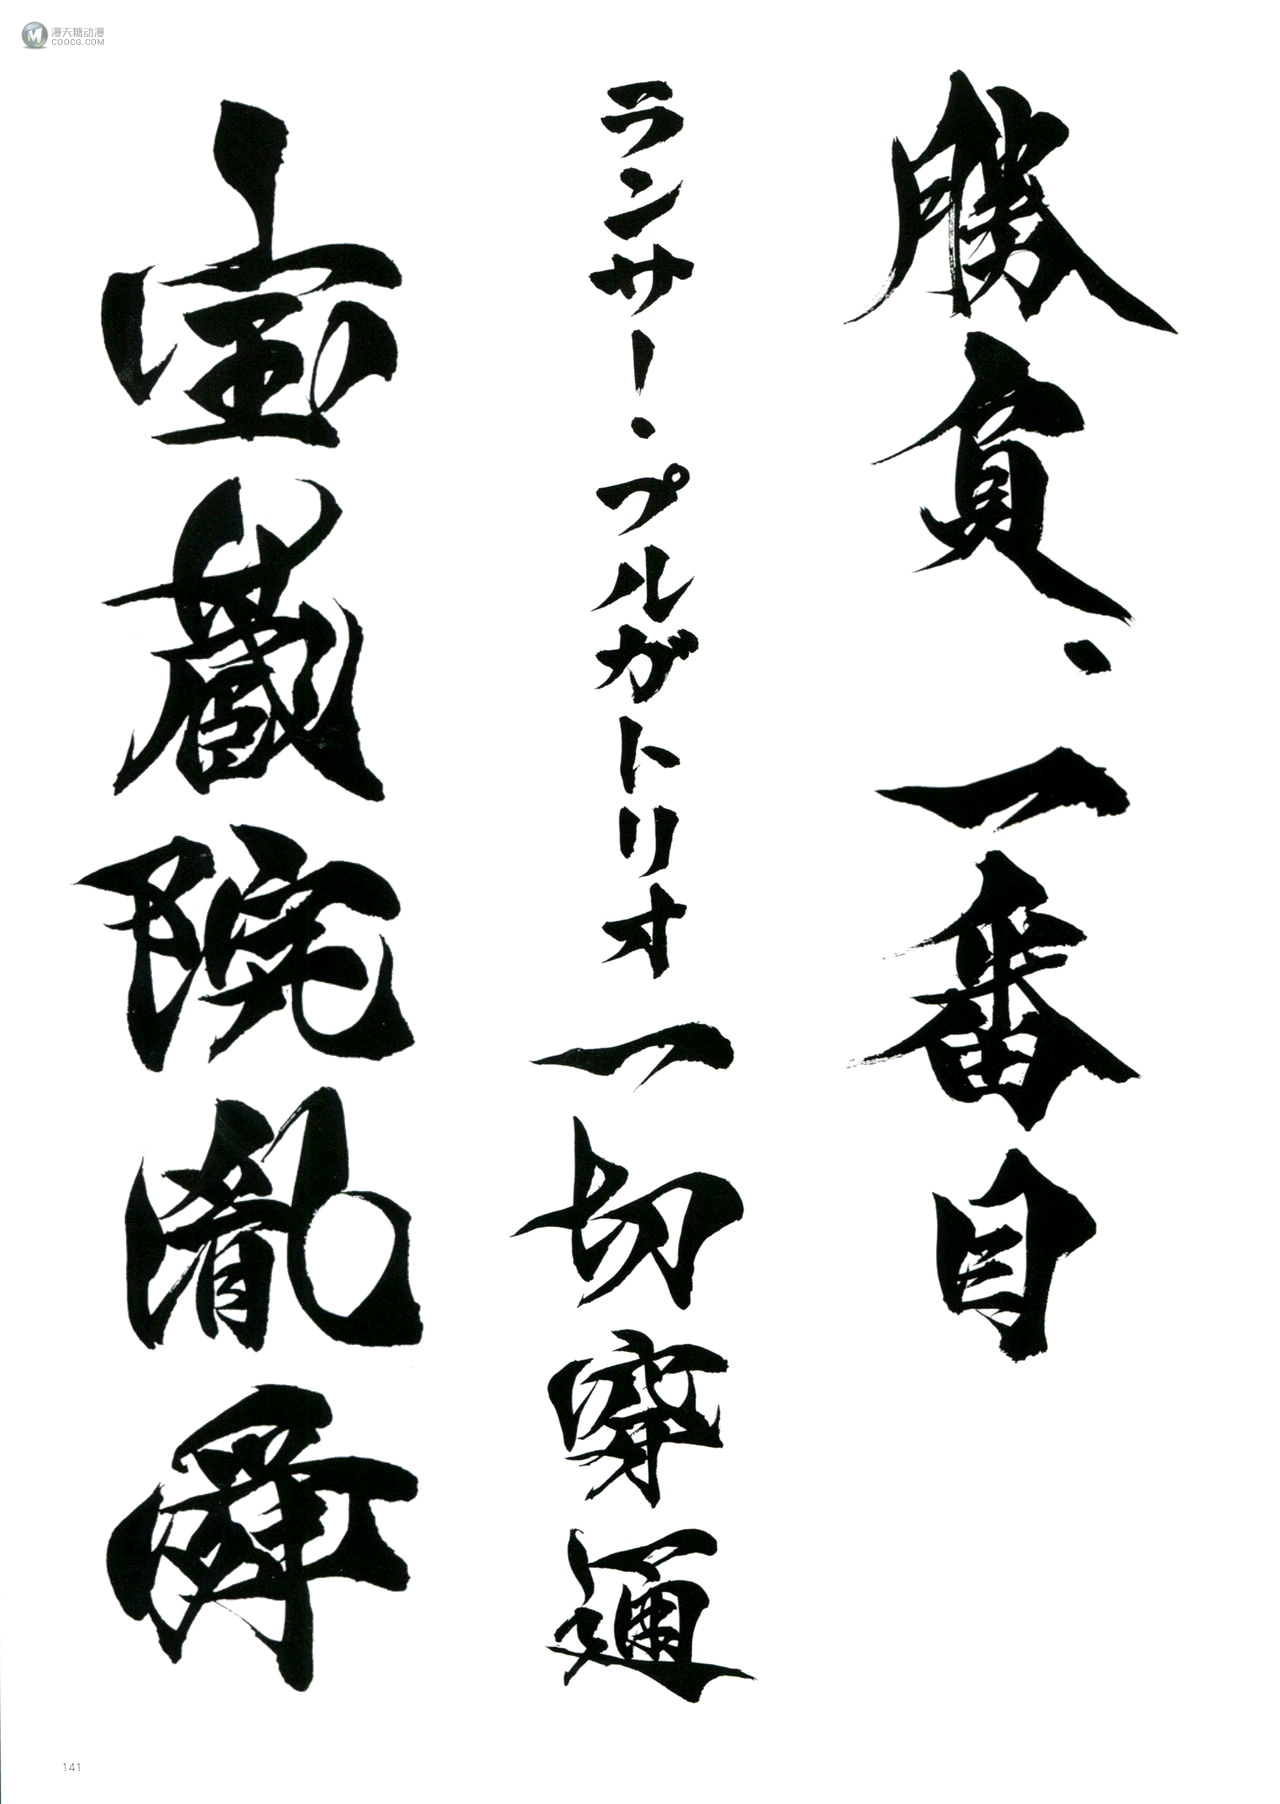 漫天糖动漫
COOCG.COM
勝負、一番目
ランサー・プルガトリオ
一切穿通
宝蔵院胤舜
141